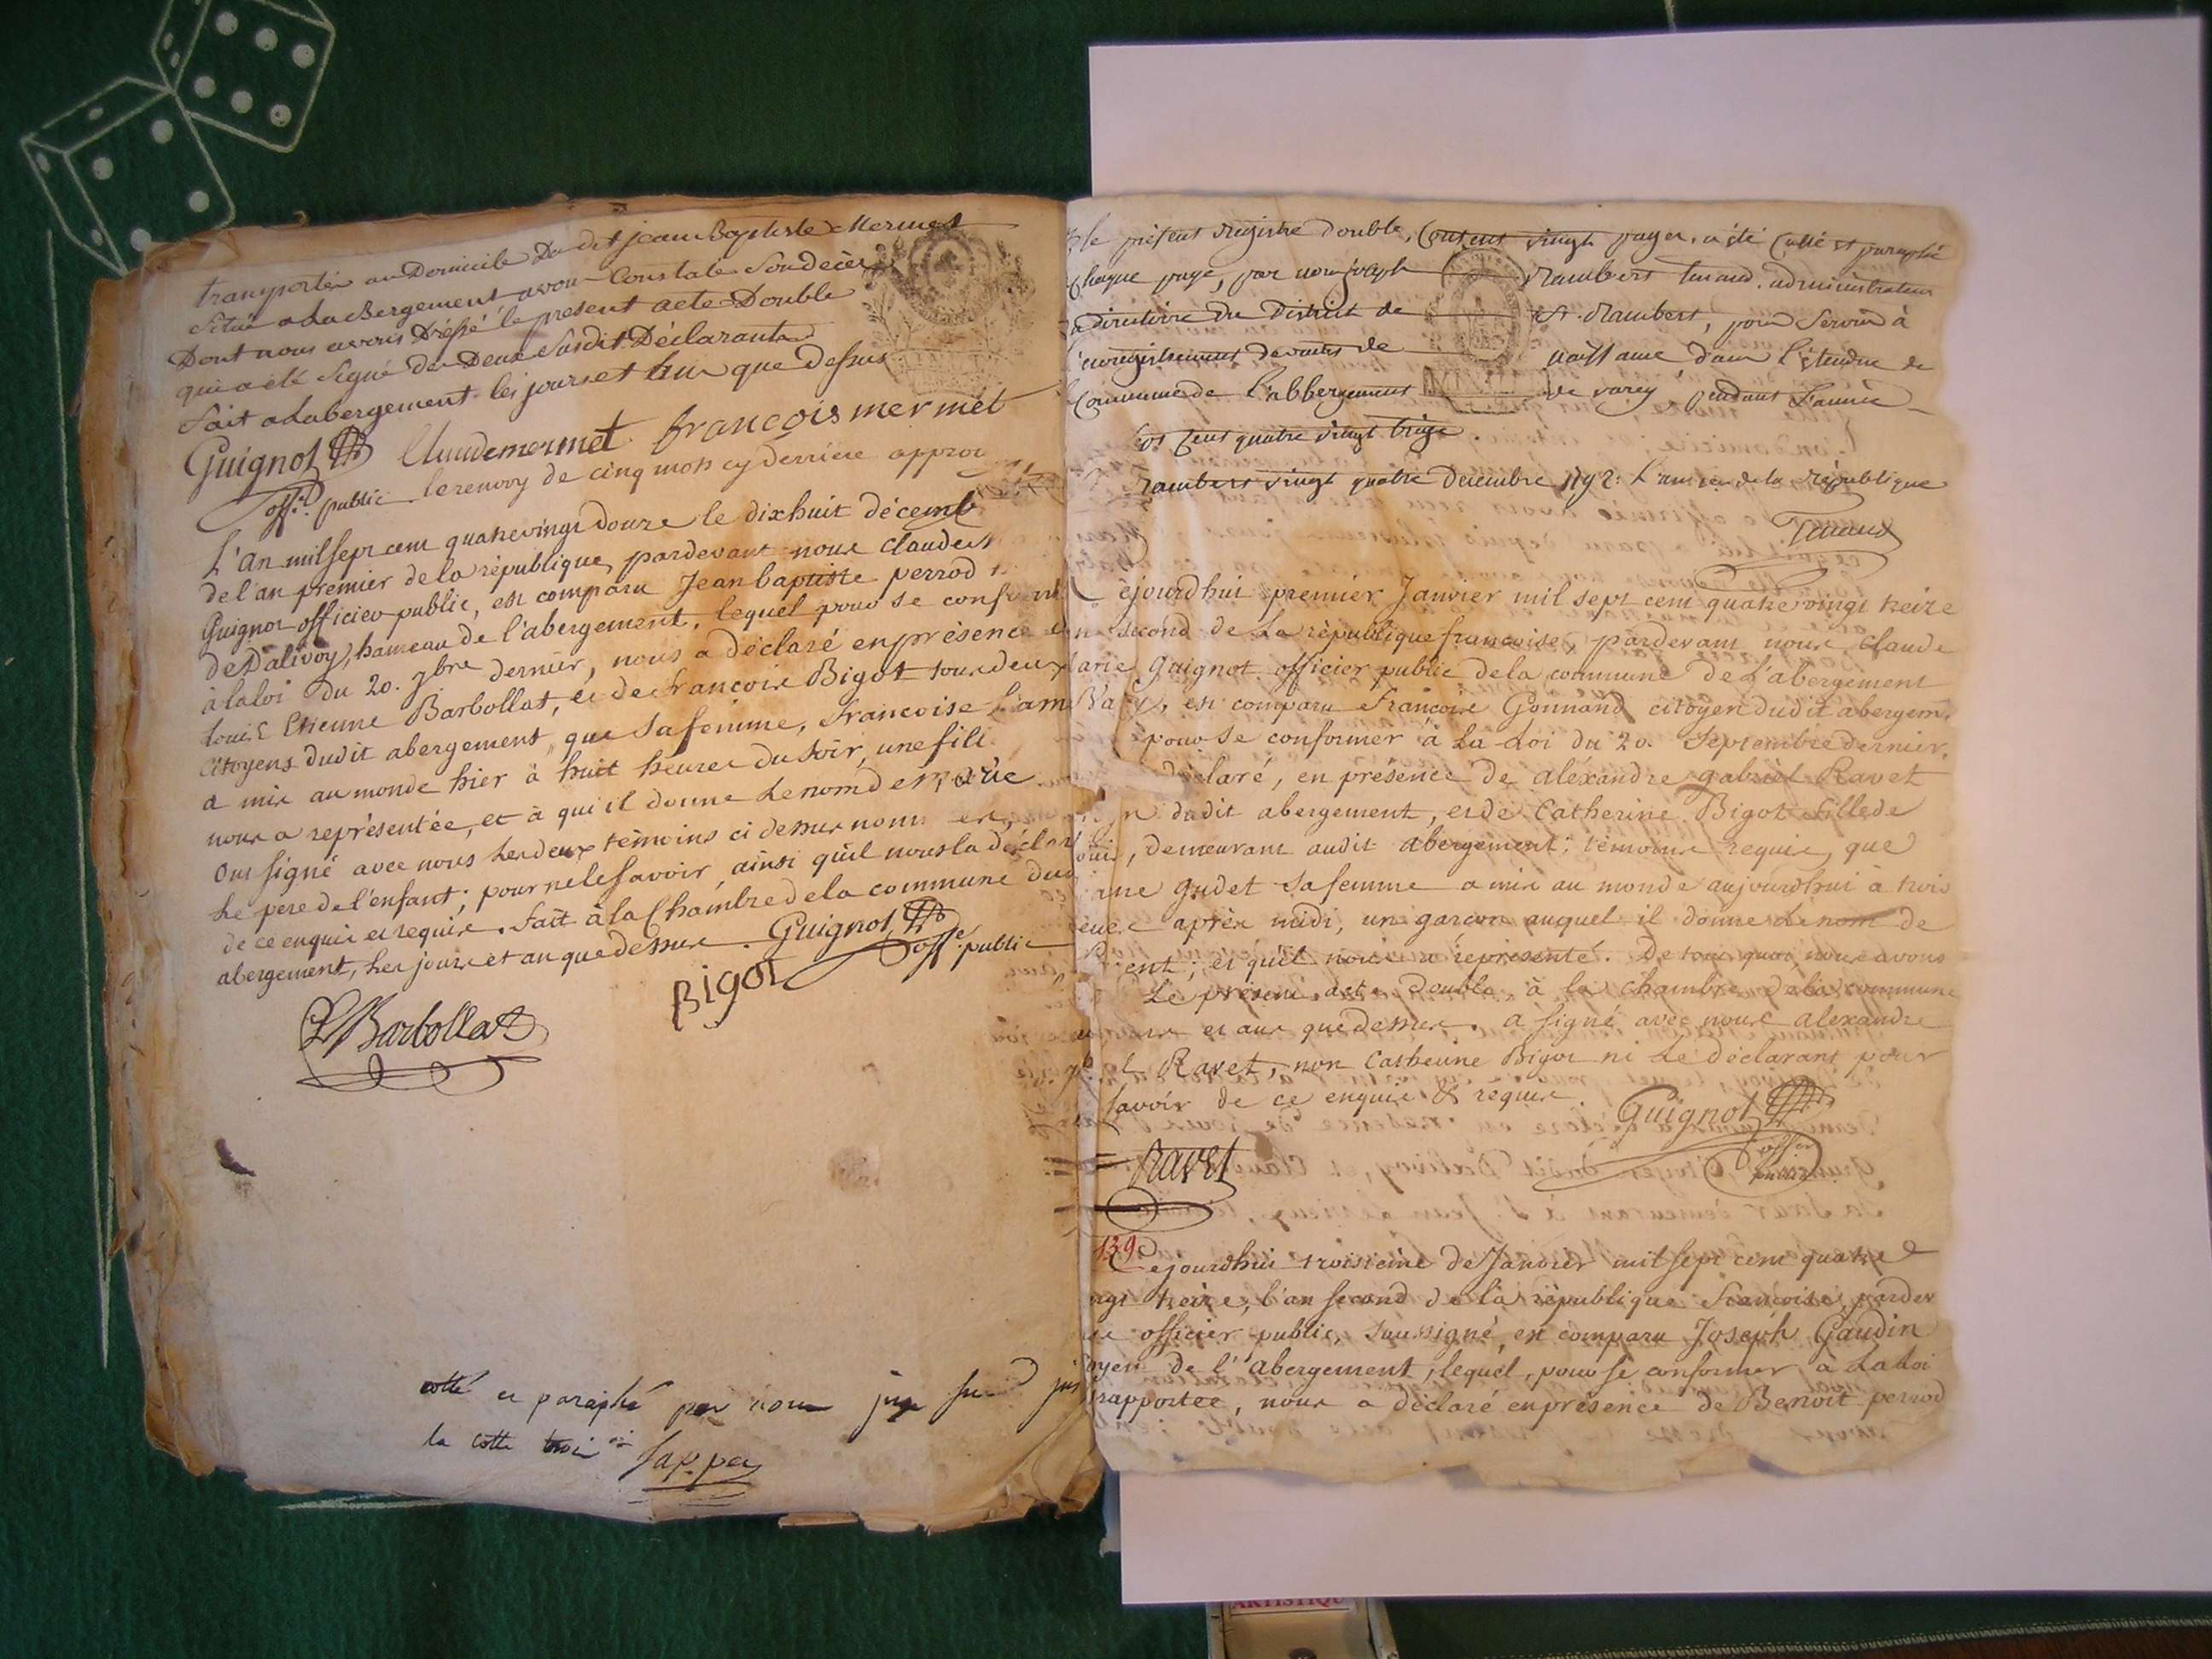 transportés au Domicile Du dit jean Baptiste Mermet
Situé a Labergement avons Constaté Son décès
Dont nous avons Dressé le present acte Double
qui a été Signé des Deux Susdit Déclarants
fait a Labergement les jours et an que dessus
Guignot Claude mermet françois mermet
offi.r public le renvoy de cinq mots cy derriere approu
L'An mil sept cent quatre vingt douze le dix huit décemb
de l'an premier de la république, pardevant nous Claude M
Guignot officier public, est comparu Jean baptiste perrod
de Dalivoy, hameau de l'abergement, lequel pour se conform
à la loi du 20. 7bre dernier, nous a déclaré en présence
Louis Etienne Barbollat, et de francois Bigot tous deux
citoyens dudit abergement, que sa femme, francoise
a mis au monde hier à huit heures du soir, une fill
nous a représentée, et à qui il donne le nom de Marie
Ont signé avec nous les deux témoins ci dessus nom
le pere de l'enfant; pour ne le savoir, ainsi qu'il nous la déclar
de ce enquis et requis. fait à la Chambre de la commune dud
abergement, les jours et an que dessus. Guignot
off. public
Bigot
L Barbollat
cotté et paraphé par nous juge
la cotte troi
Le présent Registre double, Contenant vingt pages, a été Cotté et paraphé
Chaque page, par nous joseph Rambert tenand, administrateur
directoire du District de St. Rambert, pour Servir à
l'enregistrement des actes de naissance, dans l'étendue de
Commune de l'abbergement de varey pendant l'année
sept Cent quatre vingt treize
Rambert vingt quatre decembre 1792. L'an 1.er de la république
Tenand
Cejourd'hui premier Janvier mil sept cent quatre vingt treize
second de la république francoise, pardevant nous Claude
Marie Guignot officier public de la commune de l'abergement
Varey, est comparu François Gonnand citoyen dudit abergem.
pour se conformer à la Loi du 20. Septembre dernier,
déclaré, en présence de aléxandre gabriel Ravet
dudit abergement, et de Catherine Bigot fille de
Louis, demeurant audit abergement; témoins requis, que
gudet sa femme a mis au monde aujourdhui à trois
heures après midi, un garcon auquel il donne le nom de
et qu'il nous a représenté. De tout quoi, nous avons
Le présent acte double, à la chambre de la commune
jours et ans que dessus. a signé avec nous alexandre
Ravet, non Catherine Bigot ni Le déclarant pour
savoir de ce enquis & requis. Guignot
offier
public
Ravet
139
Cejourdhui troisième de Janvier mil sept cent quatre
vingt treize, l'an second de la république francoise, pardev
officier public soussigné, est comparu Joseph Gaudin
citoyen de l'abergement, lequel, pour se conformer a la Loi
rapportée, nous a déclaré en présence de Benoit perrod
ARTISTIQU